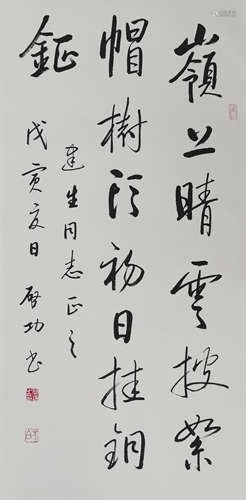 嶺上晴雲披絮
帽樹頭初日挂銅
鉦
建生同志正之
戊寅夏日 啟功书